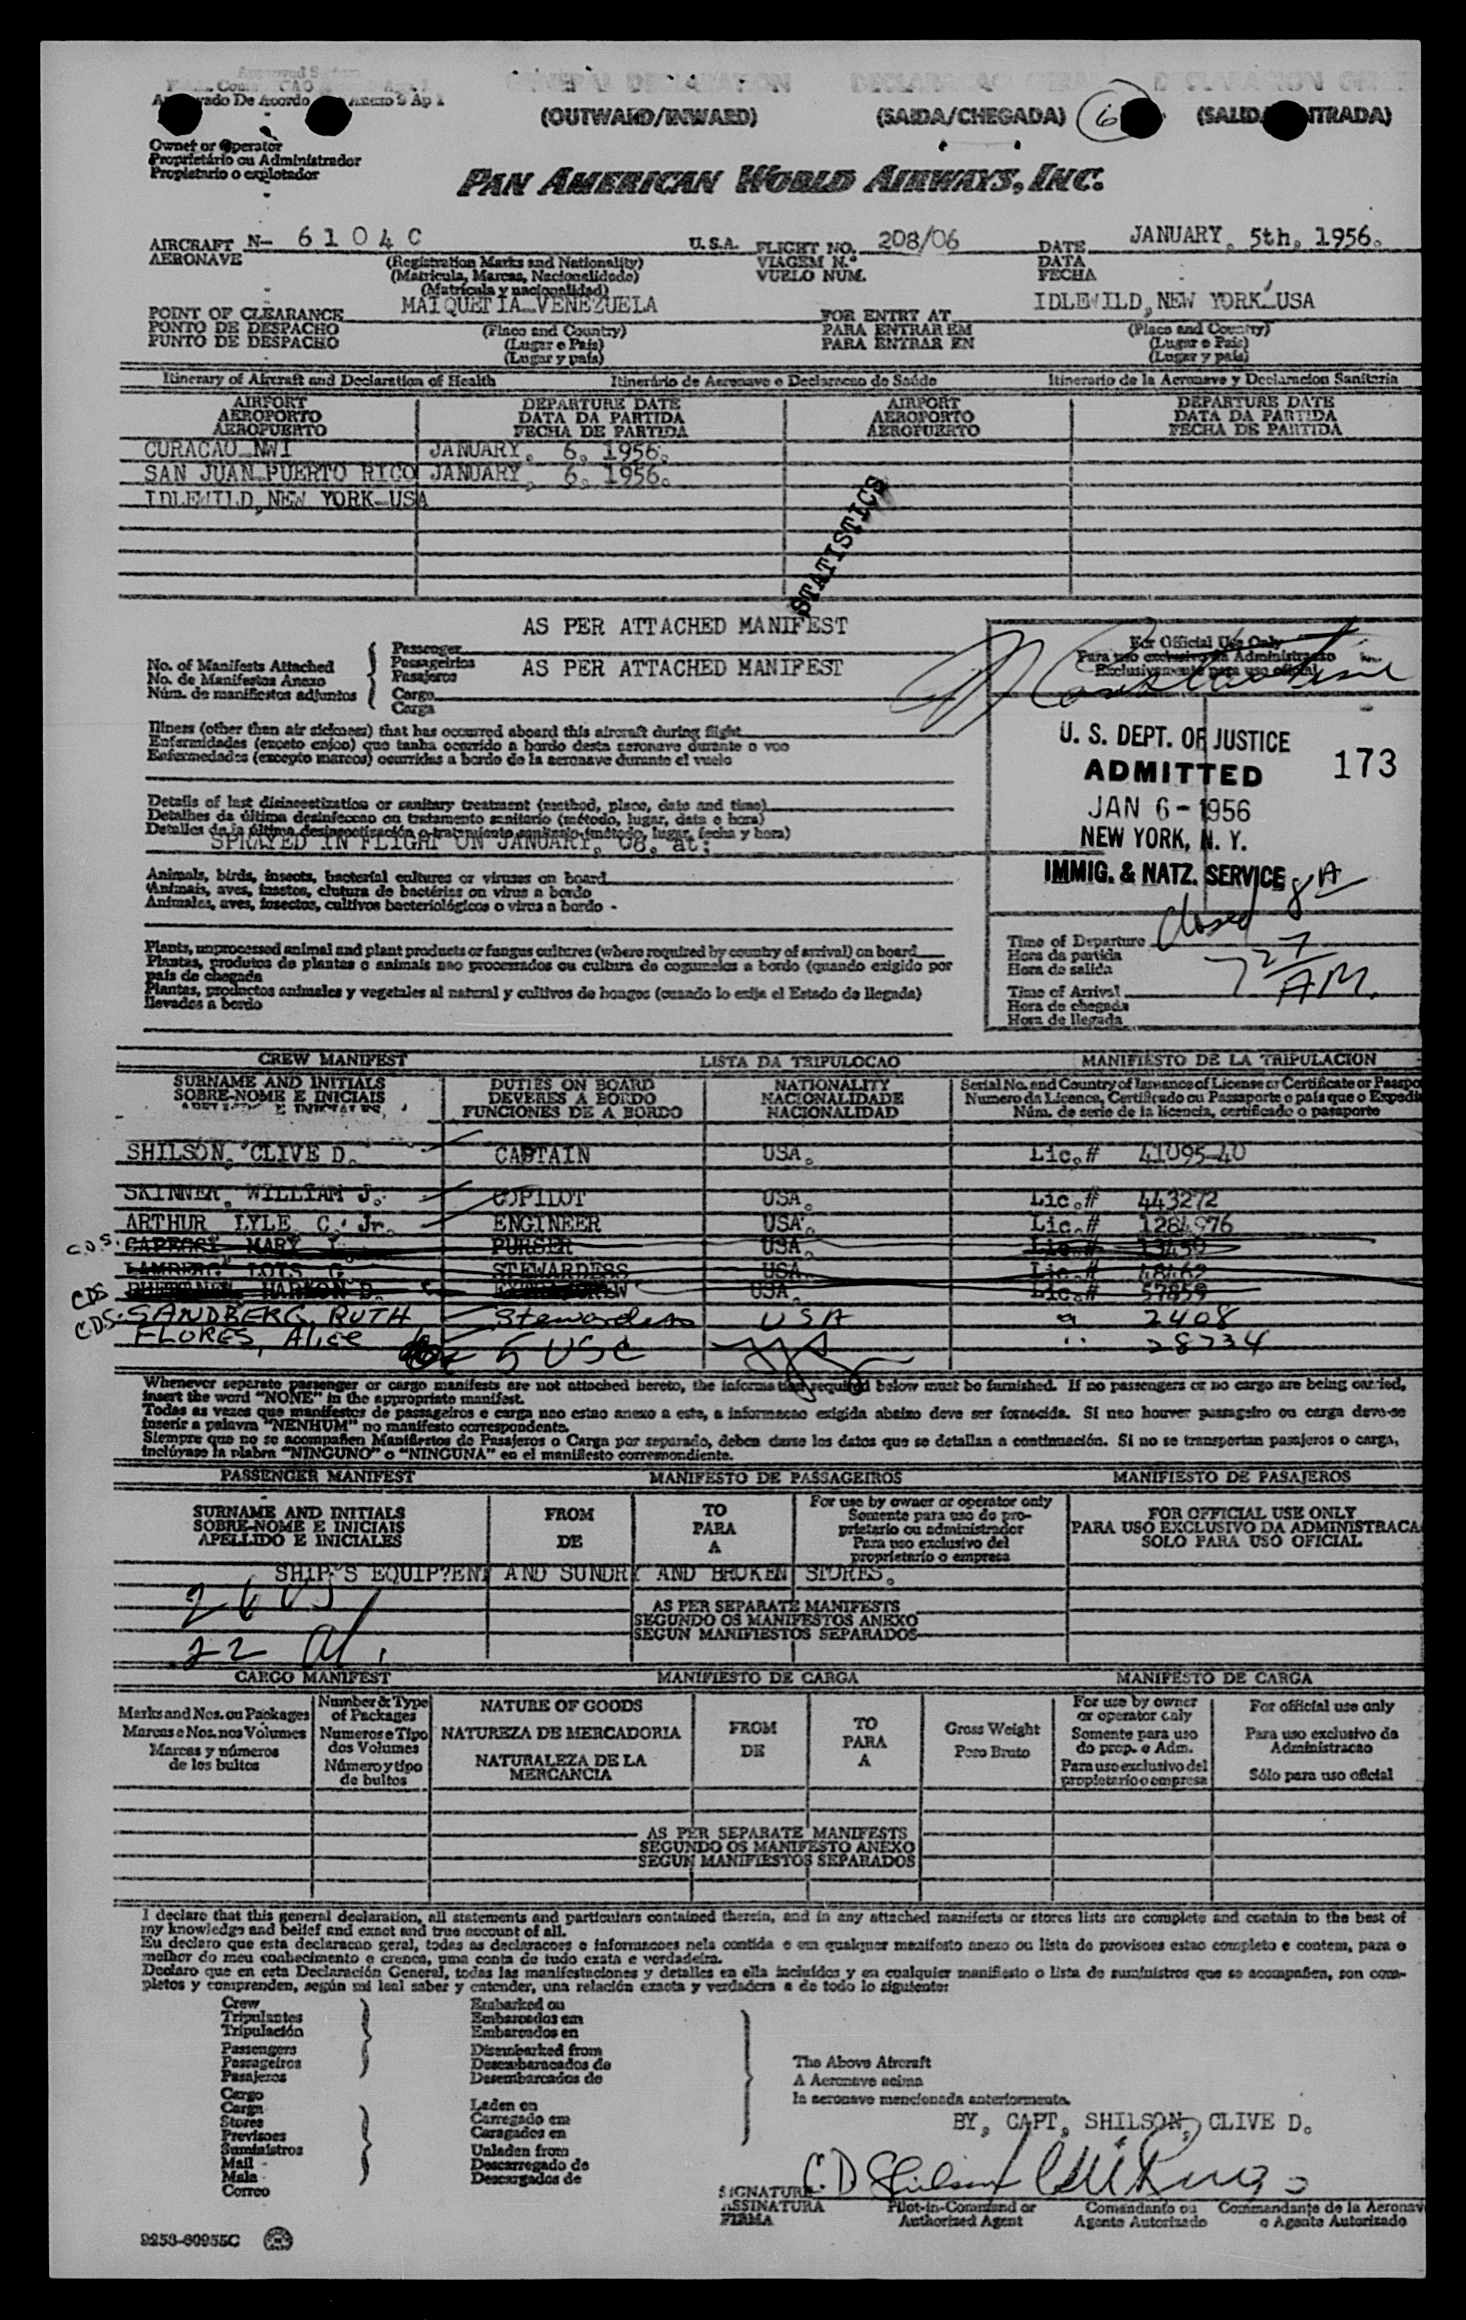 (OUTWARD/INWARD) (SAIDA/CHEGADA) 6
Owner or Operator
Proprietário ou Administrador
Propietario o explotador
PAN AMERICAN WORLD AIRWAYS, INC.
AIRCRAFT N- 6104C U.S.A. FLIGHT NO. 208/06 DATE JANUARY, 5th, 1956.
AERONAVE (Registration Marks and Nationality) VIAGEM N.º DATA
(Matricula, Marcas, Nacionalidade) VUELO NUM. FECHA
(Matricula y nacionalidad)
POINT OF CLEARANCE MAIQUETIA-VENEZUELA FOR ENTRY AT IDLEWILD, NEW YORK-USA
PONTO DE DESPACHO (Place and Country) PARA ENTRAR EM (Place and Country)
PUNTO DE DESPACHO (Lugar e País) PARA ENTRAR EN (Lugar e País)
(Lugar y país) (Lugar y país)
Itinerary of Aircraft and Declaration of Health Itinerário de Aeronave e Declaracao de Saúde Itinerario de la Aeronave y Declaracion Sanitaria
AIRPORT DEPARTURE DATE AIRPORT DEPARTURE DATE
AEROPORTO DATA DA PARTIDA AEROPORTO DATA DA PARTIDA
AEROPUERTO FECHA DE PARTIDA AEROPUERTO FECHA DE PARTIDA
CURACAO-NWI JANUARY, 6, 1956.
SAN JUAN-PUERTO RICO JANUARY, 6, 1956.
IDLEWILD, NEW YORK-USA
STATISTICS
AS PER ATTACHED MANIFEST
No. of Manifests Attached Passenger
No. de Manifestos Anexo Passageiros AS PER ATTACHED MANIFEST
Núm. de manifiestos adjuntos Pasajeros
Cargo
Carga
For Official Use Only
Para uso exclusivo da Administracao
Exclusivamente para uso oficial
Illness (other than air sickness) that has occurred aboard this aircraft during flight
Enfermidades (exceto enjoo) que tenha ocorrido a bordo desta aeronave durante o voo
Enfermedades (excepto mareos) ocurridas a bordo de la aeronave durante el vuelo
U. S. DEPT. OF JUSTICE
ADMITTED 173
JAN 6 - 1956
NEW YORK, N. Y.
IMMIG. & NATZ. SERVICE
Details of last disinsectization or sanitary treatment (method, place, date and time)
Detalhes da última desinfeccao ou tratamento sanitario (método, lugar, data e hora)
Detalles de la última desinsectización o tratamiento sanitario (método, lugar, fecha y hora)
SPRAYED IN FLIGHT ON JANUARY, 06, at:
Animals, birds, insects, bacterial cultures or viruses on board
Animais, aves, insetos, clutura de bactérias ou virus a bordo
Animales, aves, insectos, cultivos bacteriológicos o virus a bordo -
Closed 8 A
Plants, unprocessed animal and plant products or fungus cultures (where required by country of arrival) on board
Plantas, produtos de plantas e animais nao processados ou cultura de cogumelos a bordo (quando exigido por
país de chegada
Plantas, productos animales y vegetales al natural y cultivos de hongos (cuando lo exija el Estado de llegada)
llevados a bordo
Time of Departure
Hora da partida
Hora de salida
Time of Arrival 7 27 AM.
Hora de chegada
Hora de llegada
CREW MANIFEST LISTA DA TRIPULOCAO MANIFIESTO DE LA TRIPULACION
SURNAME AND INITIALS DUTIES ON BOARD NATIONALITY Serial No. and Country of Issuance of License or Certificate or Passpo
SOBRE-NOME E INICIAIS DEVERES A BORDO NACIONALIDADE Numero da Licenca, Certificado ou Passaporte e país que o Expedi
FUNCIONES DE A BORDO NACIONALIDAD Núm. de serie de la licencia, certificado o pasaporte
SHILSON, CLIVE D. CAPTAIN USA. Lic.# 41095-40
SKINNER, WILLIAM J. COPILOT USA. Lic.# 443272
ARTHUR LYLE C. Jr. ENGINEER USA. Lic.# 1284976
C.D.S. MARY PURSER USA. Lic.#
LOIS G. STEWARDESS USA Lic.# 48469
CDS USA. Lic.# 57859
CDS. SANDBERG, RUTH Stewardess USA " 2408
FLORES, Alice " 28734
5 USC
Whenever separate passenger or cargo manifests are not attached hereto, the information required below must be furnished. If no passengers or no cargo are being carried,
insert the word "NONE" in the appropriate manifest.
Todas as vezes que manifestos de passageiros e carga nao estao anexo a este, a informacao exigida abaixo deve ser fornecida. Si nao houver passageiro ou carga deve-se
inserir a palavra "NENHUM" no manifesto correspondente.
Siempre que no se acompañen Manifiestos de Pasajeros o Carga por separado, deben darse los datos que se detallan a continuación. Si no se transportan pasajeros o carga,
inclúyase la plabra "NINGUNO" o "NINGUNA" en el manifiesto correspondiente.
PASSENGER MANIFEST MANIFESTO DE PASSAGEIROS MANIFIESTO DE PASAJEROS
SURNAME AND INITIALS FROM TO For use by owner or operator only FOR OFFICIAL USE ONLY
SOBRE-NOME E INICIAIS DE PARA Somente para uso do pro- PARA USO EXCLUSIVO DA ADMINISTRACA
APELLIDO E INICIALES A prietario ou administrador SOLO PARA USO OFICIAL
Para uso exclusivo del
proprietario o empresa
SHIP'S EQUIP?ENT AND SUNDRY AND BROKEN STORES.
AS PER SEPARATE MANIFESTS
SEGUNDO OS MANIFESTOS ANEXO
SEGUN MANIFIESTOS SEPARADOS
22 Al.
CARGO MANIFEST MANIFIESTO DE CARGA MANIFESTO DE CARGA
Marks and Nos. ou Packages Number & Type of Packages NATURE OF GOODS FROM TO Gross Weight For use by owner or operator only For official use only
Marcas e Nos. nos Volumes Numeros e Tipo dos Volumes NATUREZA DE MERCADORIA DE PARA Peso Bruto Somente para uso do prop. e Adm. Para uso exclusivo da Administracao
Marcas y números de los bultos Número y tipo de bultos NATURALEZA DE LA MERCANCIA A Para uso exclusivo del propietario o empresa Sólo para uso oficial
AS PER SEPARATE MANIFESTS
SEGUNDO OS MANIFESTO ANEXO
SEGUN MANIFIESTOS SEPARADOS
I declare that this general declaration, all statements and particulars contained therein, and in any attached manifests or stores lists are complete and contain to the best of
my knowledge and belief and exact and true account of all.
Eu declaro que esta declaracao geral, todas as declaracoes e informacoes nela contida e em qualquer manifesto anexo ou lista de provisoes estao completo e contem, para o
melhor do meu conhecimento e crenca, uma conta de tudo exata e verdadeira.
Declaro que en esta Declaración General, todas las manifestaciones y detalles en ella incluídos y en cualquier manifiesto o lista de suministros que se acompañen, son com-
pletos y comprenden, según mi leal saber y entender, una relación exacta y verdadera a de todo lo siguiente:
Crew Embarked ou
Tripulantes Embarcados em
Tripulación Embarcados en
Passengers Disembarked from
Passageiros Desembaracados de
Pasajeros Desembarcados de
Cargo
Carga Laden on
Stores Carregado em
Previsoes Caragados en
Suministros Unladen from
Mail - Descarregado de
Mala - Descargados de
Correo
The Above Aircraft
A Aeronave acima
la aeronave mencionada anteriormente.
BY, CAPT, SHILSON, CLIVE D.
SIGNATURE C. D. Shilson
ASSINATURA Pilot-in-Command or Comandante ou Commandante de la Aeronav
FIRMA Authorized Agent Agente Autorizado o Agente Autorizado
9253-60955C